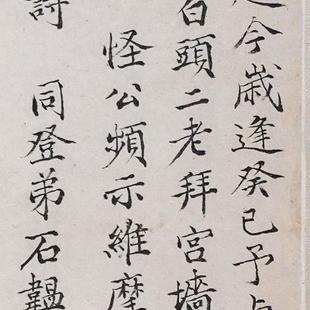 今歲逢癸巳予
白頭二老拜宮墻
怪公頻示維摩
詩 同登弟石韞